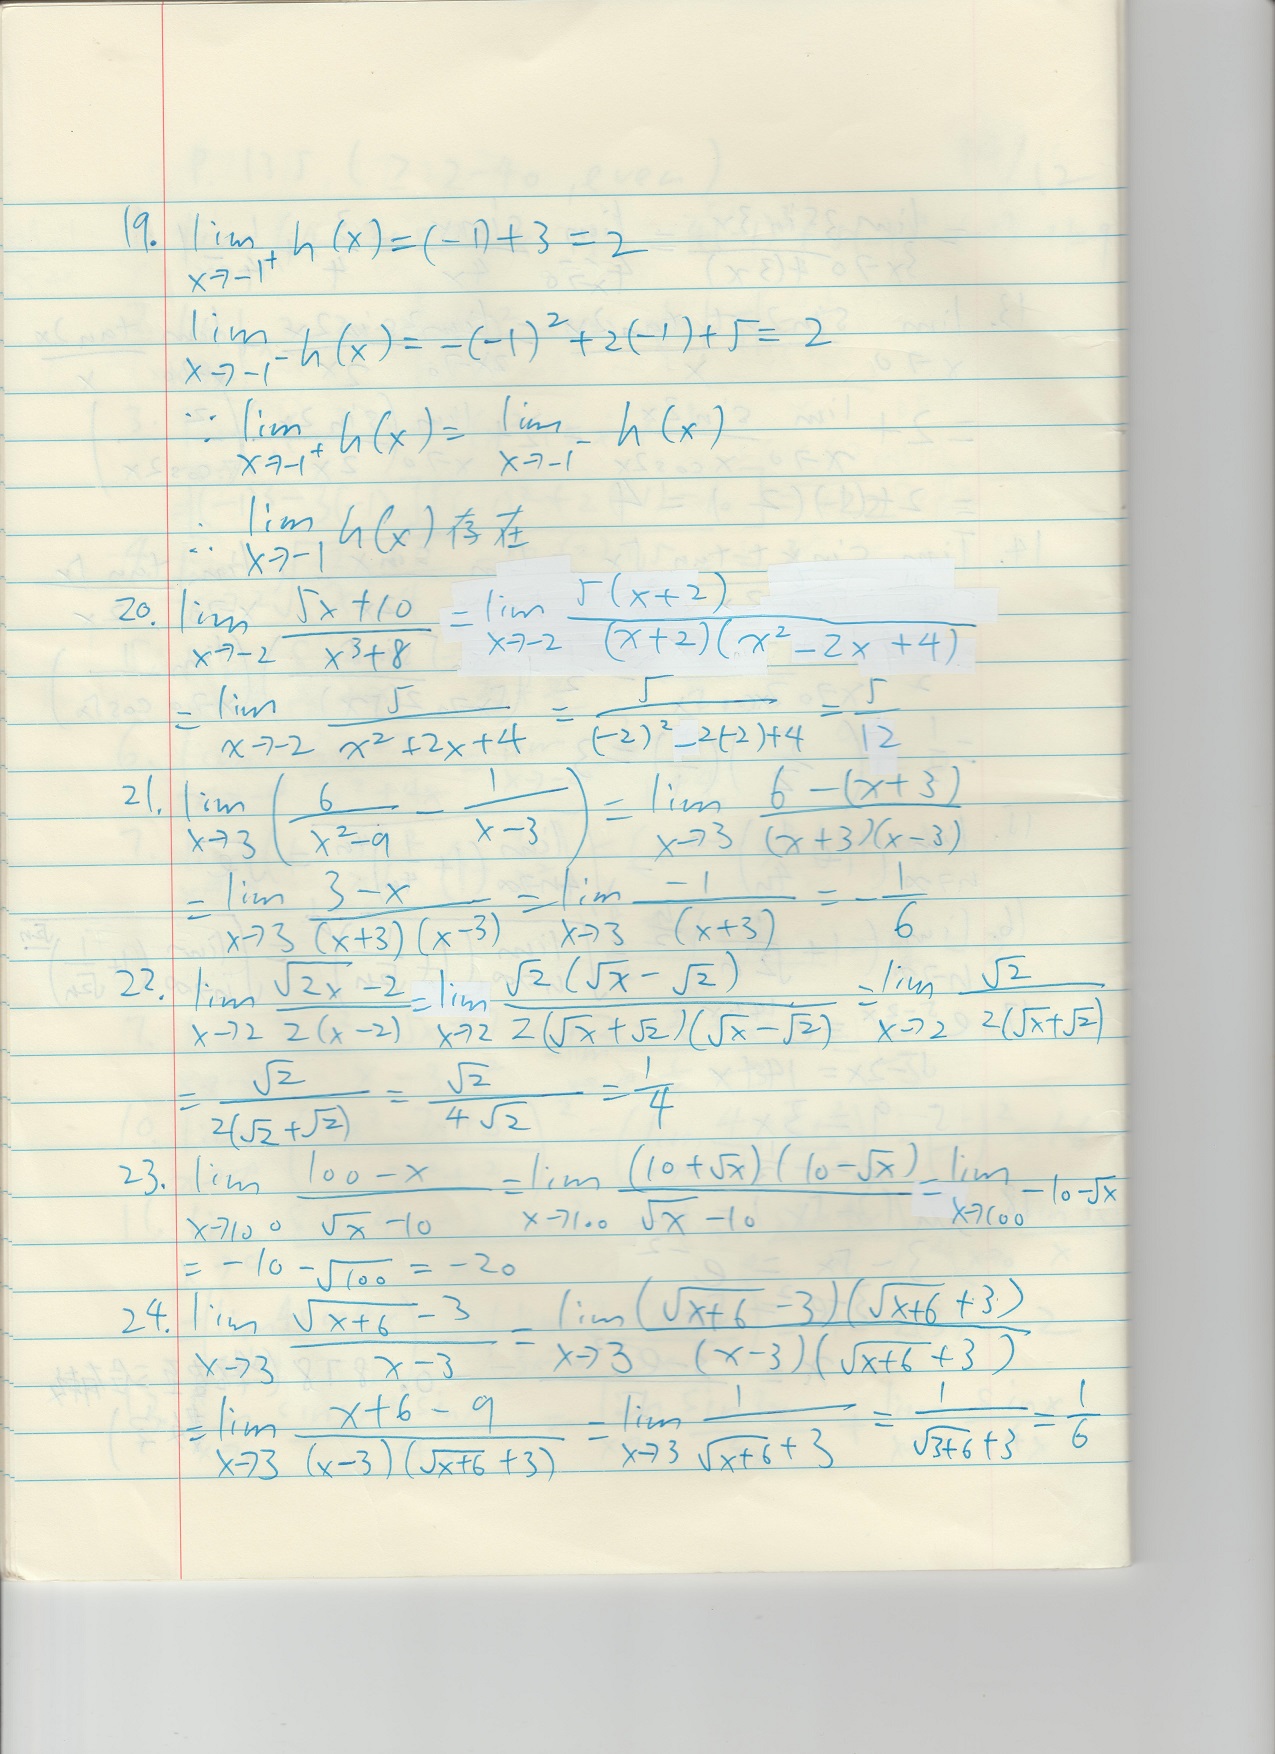 19. lim x→-1⁺ h(x) = (-1)+3 = 2
lim x→-1⁻ h(x) = -(-1)²+2(-1)+5 = 2
∵ lim x→-1⁺ h(x) = lim x→-1⁻ h(x)
∴ lim x→-1 h(x) 存在
20. lim x→-2 (5x+10)/(x³+8) = lim x→-2 5(x+2)/((x+2)(x²-2x+4))
= lim x→-2 5/(x²+2x+4) = 5/((-2)²-2(-2)+4) = 5/12
21. lim x→3 (6/(x²-9) - 1/(x-3)) = lim x→3 (6-(x+3))/((x+3)(x-3))
= lim x→3 (3-x)/((x+3)(x-3)) = lim x→3 -1/(x+3) = -1/6
22. lim x→2 (√2x-2)/(2(x-2)) = lim x→2 √2(√x-√2)/(2(√x+√2)(√x-√2)) = lim x→2 √2/(2(√x+√2))
= √2/(2(√2+√2)) = √2/(4√2) = 1/4
23. lim x→100 (100-x)/(√x-10) = lim x→100 (10+√x)(10-√x)/(√x-10) = lim x→100 -10-√x
= -10-√100 = -20
24. lim x→3 (√x+6-3)/(x-3) = lim x→3 (√x+6-3)(√x+6+3)/((x-3)(√x+6+3))
= lim x→3 (x+6-9)/((x-3)(√x+6+3)) = lim x→3 1/(√x+6+3) = 1/(√3+6+3) = 1/6